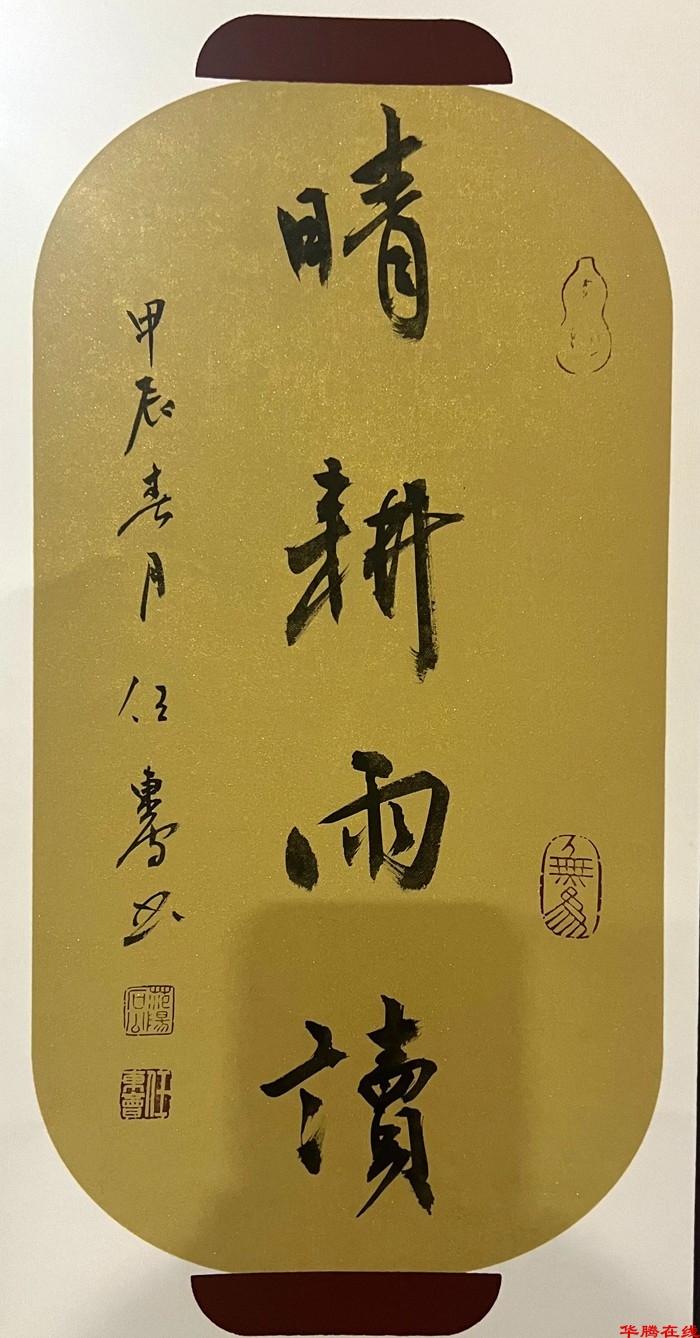 晴耕雨讀
甲辰春月 任東
华腾在线